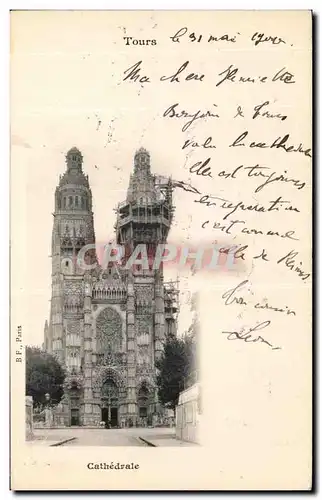 Tours
le 31 mai
Ma chere
Bonjour de Tours
voici la cathédrale
elle est toujours
en reparation
c'est comme
celle de Reims
ton cousin
Léon
CPARAMA
B F, Paris
Cathédrale